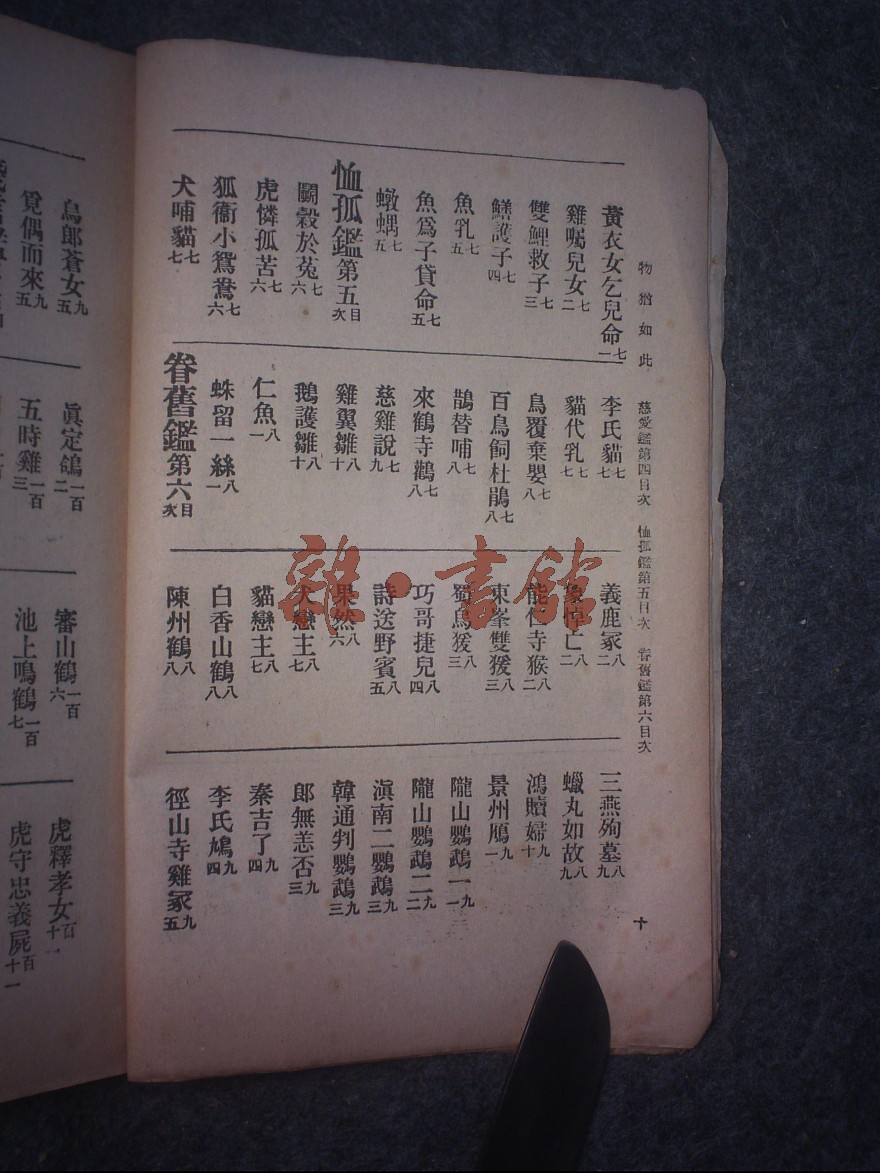 物猶如此 慈愛鑑第四目次 恤孤鑑第五目次 眷舊鑑第六目次 十
黃衣女乞兒命七一
雞囑兒女七二
雙鯉救子七三
鱔護子七四
魚乳七五
魚爲子貸命七五
七五
恤孤鑑第五目次
鬬穀於菟七六
虎憐孤苦七六
狐銜小鴛鴦七六
犬哺貓七七
李氏貓七七
貓代乳七七
鳥覆棄嬰七八
百鳥飼杜鵑七八
鵲替哺七八
來鶴寺鸛七八
慈雞說七九
雞翼雛八十
鵝護雛八十
仁魚八一
蛛留一絲八一
眷舊鑑第六目次
義鹿冢八二
象悼亡八二
能仁寺猴八二
東峯雙猨八三
蜀烏猨八三
巧哥捷兒八四
詩送野賓八五
果然八六
犬戀主八七
貓戀主八七
白香山鶴八八
陳州鶴八八
三燕殉墓八九
蠟丸如故八九
鴻贖婦九十
景州鴈九一
隴山鸚鵡一九一
隴山鸚鵡二九二
滇南二鸚鵡九三
韓通判鸚鵡九三
郎無恙否九三
秦吉了九四
李氏鳩九四
徑山寺雞冢九五
烏郎蒼女九五
覓偶而來九五
眞定鴿一百二
五時雞一百三
審山鶴一百六
池上鳴鶴一百七
虎釋孝女百十一
虎守忠義屍百十一
雜·書館